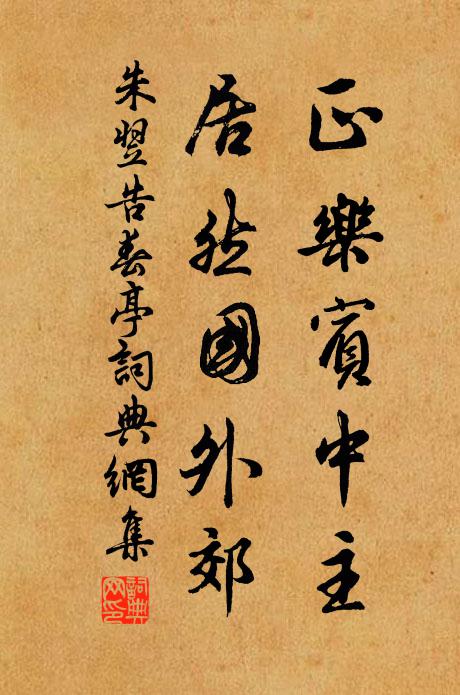 正樂賓中主
居然國外郊
朱翌告春亭詞典網集
詞典網印